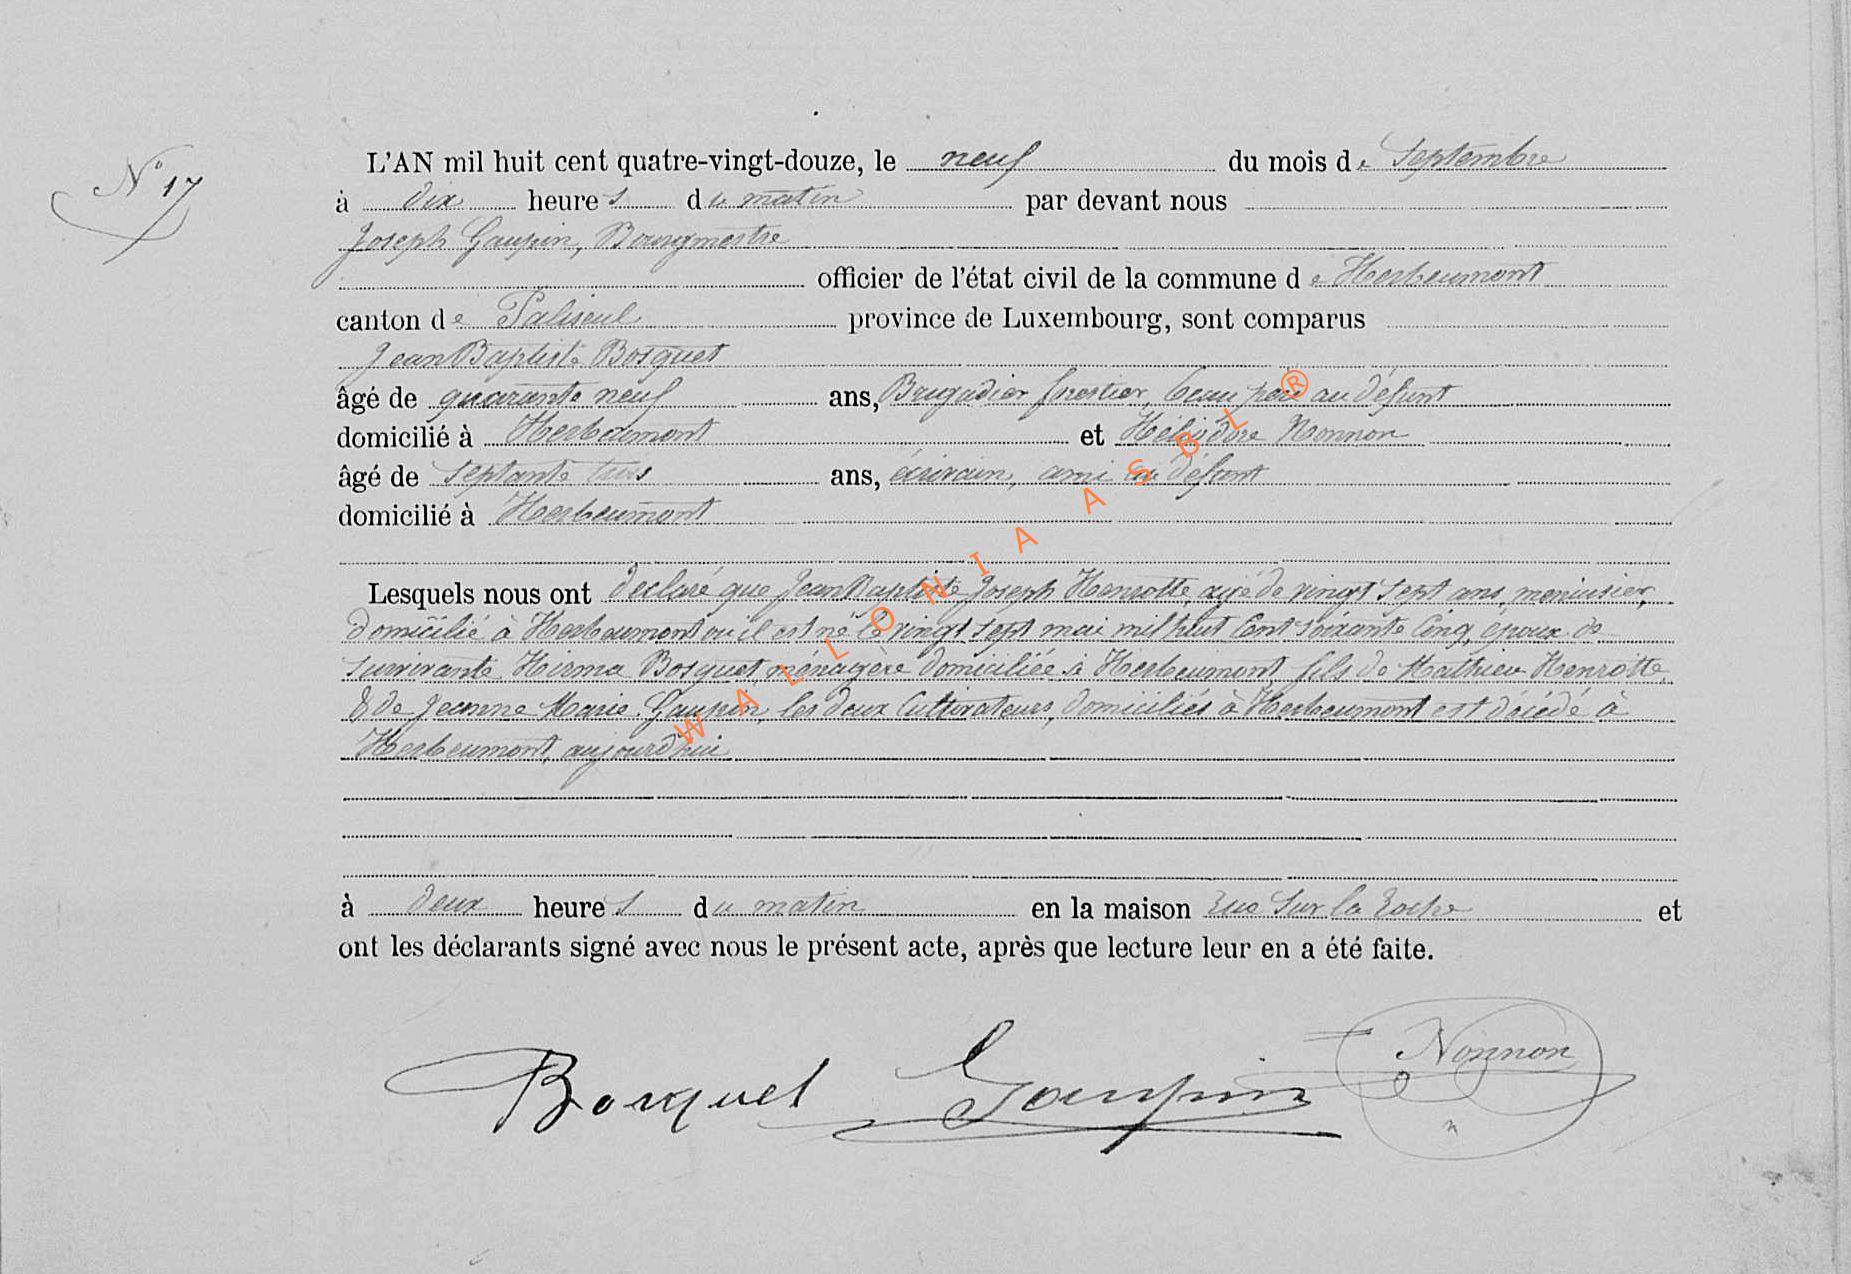 N° 17
L'AN mil huit cent quatre-vingt-douze, le neuf du mois de Septembre
à dix heures du matin par devant nous
Joseph Gaupin, Bourgmestre
officier de l'état civil de la commune de Herbeumont
canton de Paliseul province de Luxembourg, sont comparus
Jean Baptiste Bosquet
âgé de quarante neuf ans, Brigadier forestier, beau père au défunt
domicilié à Herbeumont et Héliodore Nonnon
âgé de septante trois ans, écrivain, ami au défunt
domicilié à Herbeumont
Lesquels nous ont déclaré que Jean Baptiste Joseph Henrotte, agé de vingt sept ans, menuisier,
domicilié à Herbeumont ou il est né le vingt sept mai mil huit Cent soixante Cinq, epoux de
survivante Hirma Bosquet, ménagère domiciliée à Herbeumont, fils de Mathieu Henrotte
& de Jeanne Marie Gaupin, les deux Cultivateurs, domiciliés à Herbeumont est décédé à
Herbeumont, aujourd'hui
à deux heures du matin en la maison rue Sur la Roche et
ont les déclarants signé avec nous le présent acte, après que lecture leur en a été faite.
Bosquet Gaupin Nonnon
WALLONIA ASBL ®